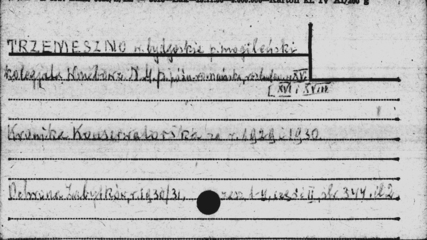 TRZEMESZNO w. bydgoskie p. mogileński
kolegjata Wniebowz. N.M.P. późn. romańska, rozbudow. w XV
XVI i XVIII
Kronika Konserwatorska za r. 1929 i 1930
Ochrona Zabytków, r. 1930/31, zesz. 1-4, część II, str. 344, il. 2